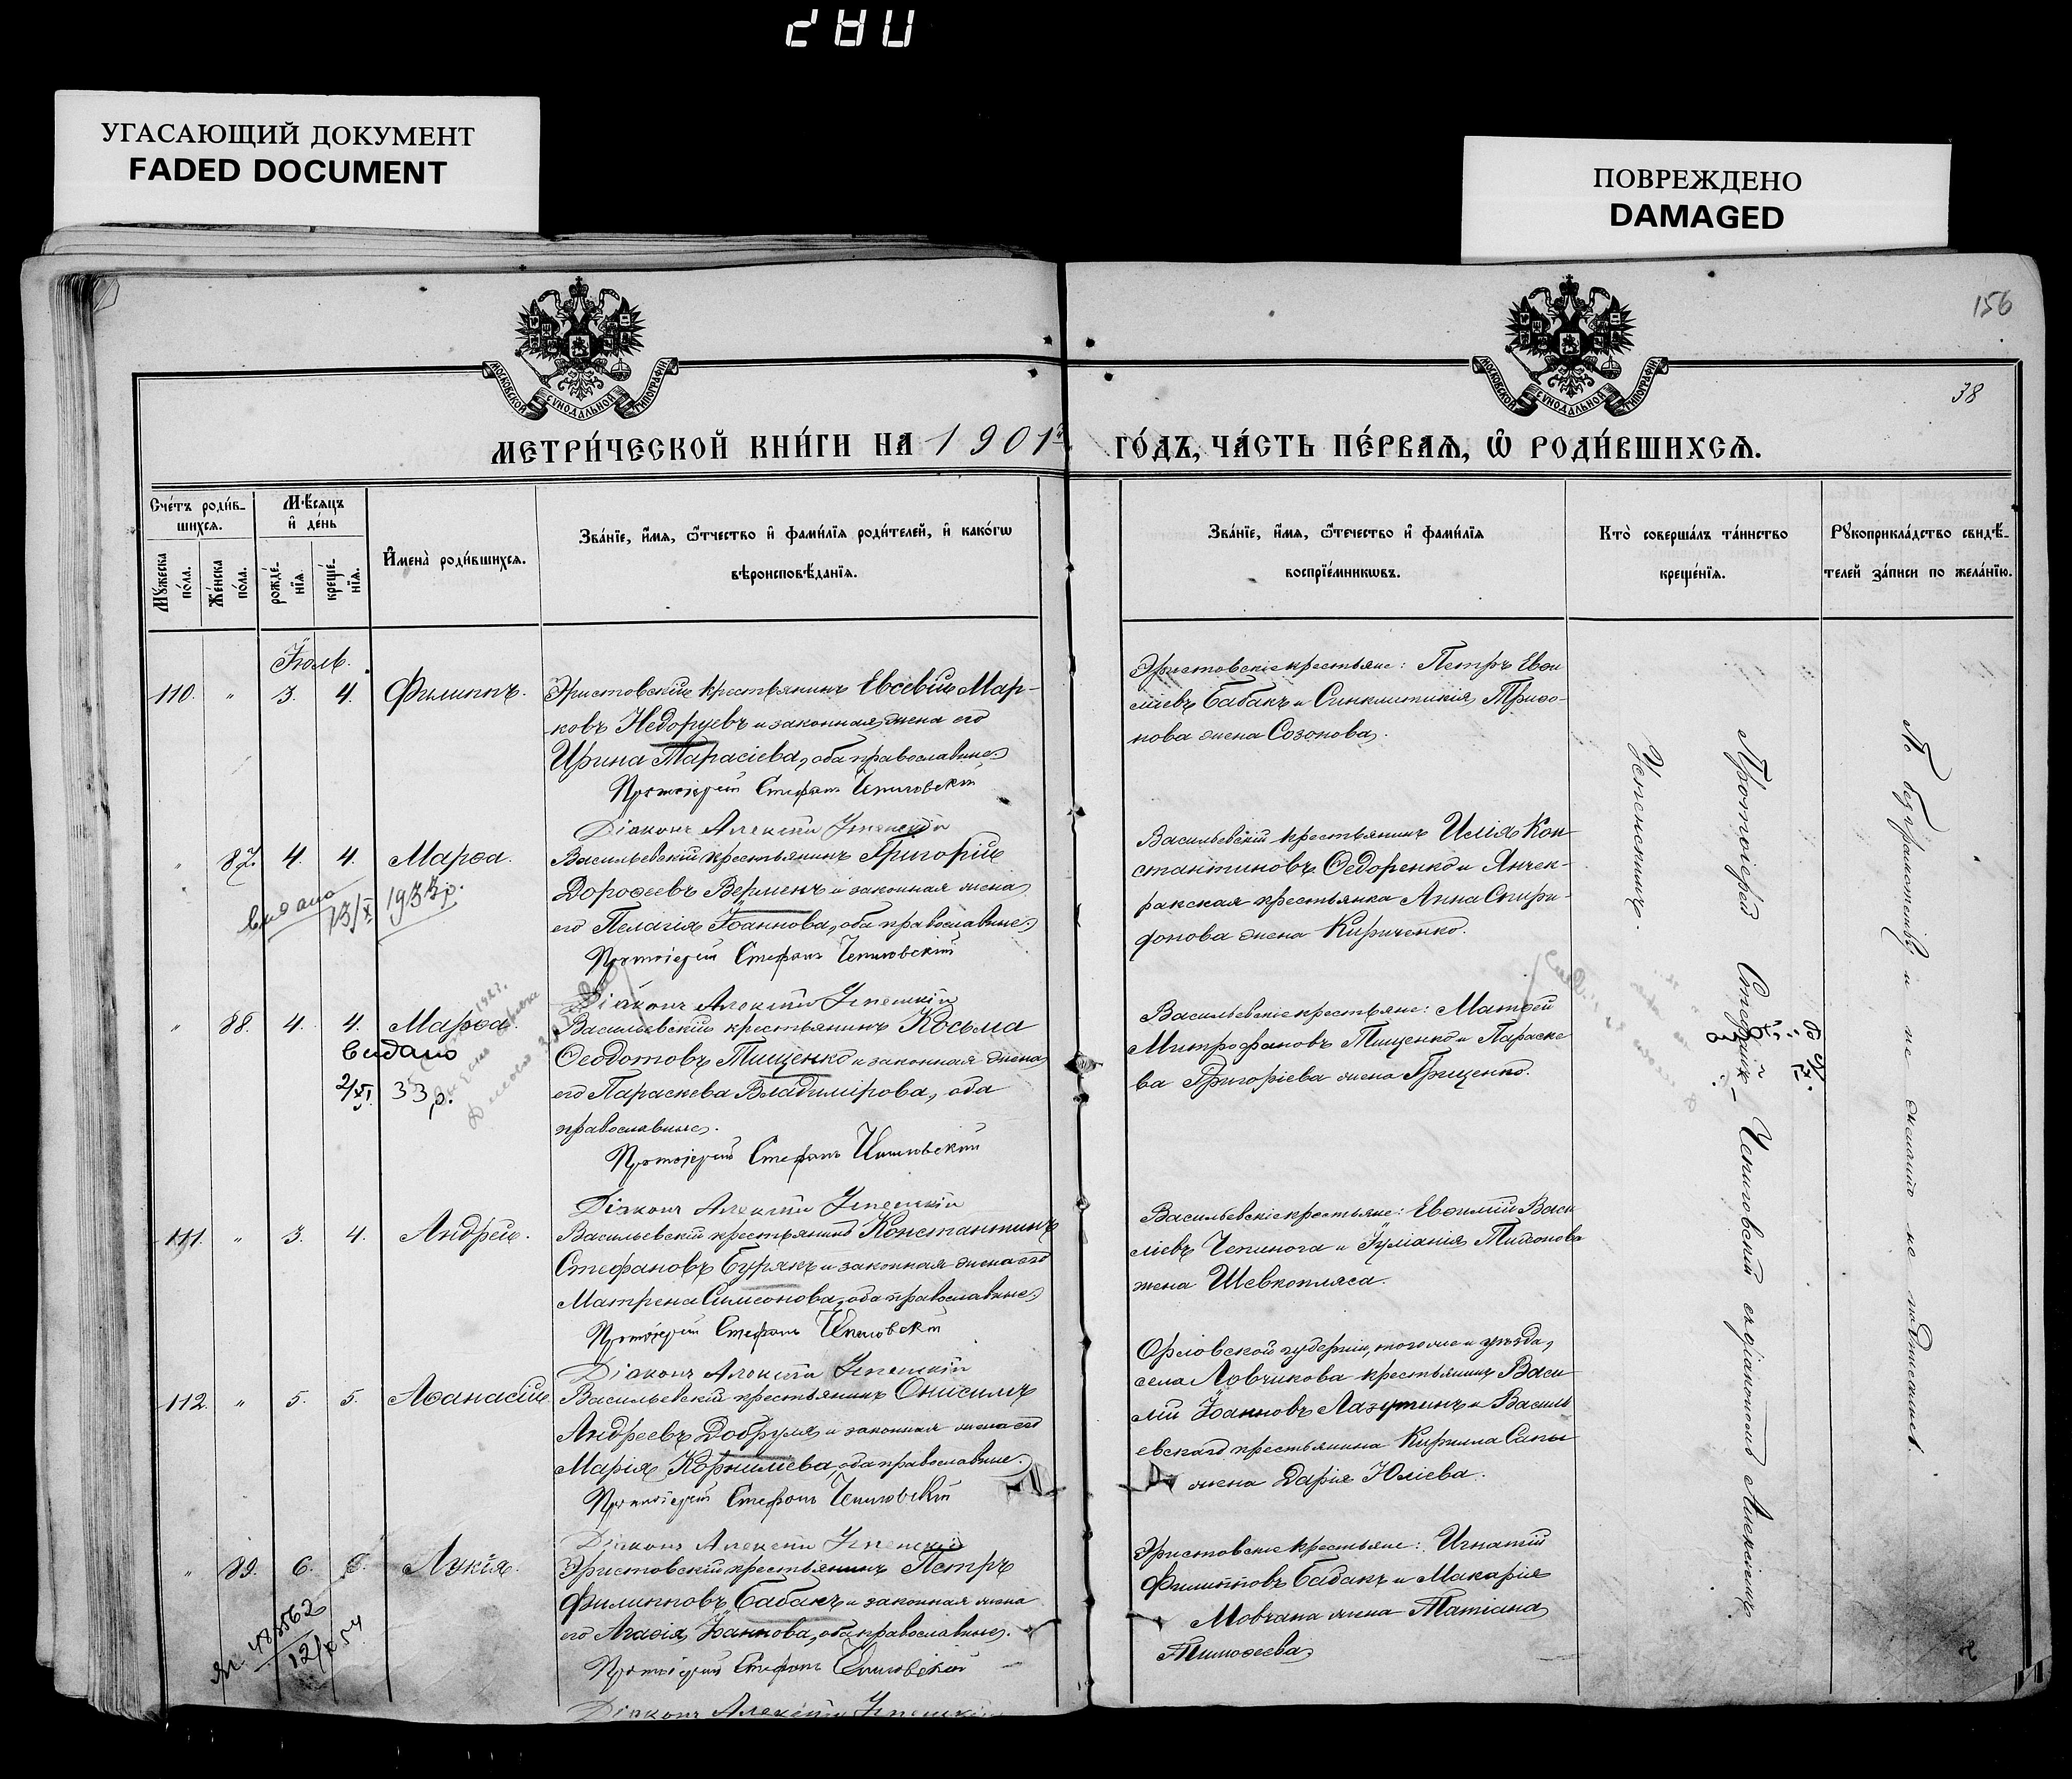 УГАСАЮЩИЙ ДОКУМЕНТ
FADED DOCUMENT
ПОВРЕЖДЕНО
DAMAGED
156
38
МОСКОВСКОЙ СѴНОДАЛЬНОЙ ТИПОГРАФІИ
МОСКОВСКОЙ СѴНОДАЛЬНОЙ ТИПОГРАФІИ
МЕТРИ́ЧЕСКОЙ КНИ́ГИ НА 1901й ГО́ДЪ, ЧА́СТЬ ПЕ́РВАѦ, Ѡ҆ РОДИ́ВШИХСѦ.
Сче́тъ роди́в-
шихсѧ.
Мꙋ́жеска по́ла.
Же́нска по́ла.
Мѣ́сѧцъ
и҆ де́нь
рожде́-
нїѧ.
креще́-
нїѧ.
И҆мена̀ роди́вшихсѧ.
Зва́нїе, и҆́мѧ, ѻ҆́тчество и҆ фами́лїѧ роди́телей, и҆ како́гѡ
вѣроисповѣ́данїѧ.
Зва́нїе, и҆́мѧ, ѻ҆́течество и҆ фами́лїѧ
воспрїе́мникѡвъ.
Кто̀ соверша́лъ та́инство
креще́нїѧ.
Рꙋкоприкла́дство свидѣ́-
телей за́писи по жела́нїю.
Іюль.
110. " 3. 4. Филиппъ.
Эристовскій крестьянинъ Евсевій Мар-
ковъ Недоруевъ и законная жена его
Ирина Тарасіева, оба православные.
Протоіерей Стефанъ Чепиговскій
Діаконъ Алексій Успенскій
Эристовскіе крестьяне: Петръ Евѳи
міевъ Бабакъ и Синклитикія Триѳо-
нова жена Созонова.
" 87. 4. 4. Марѳа.
видано 13/X 1933р.
Васильевскій крестьянинъ Григорій
Дороѳеевъ Верменъ и законная жена
его Пелагія Іоаннова, оба православные.
Протоіерей Стефанъ Чепиговскій
Діаконъ Алексій Успенскій
Васильевскій крестьянинъ Илія Кон-
стантиновъ Ѳедоренко и Янчек-
ракская крестьянка Анна Спири-
донова жена Кириченко.
" 88. 4. 4. Марѳа.
видано
2/XI. 33 р.
Васильевскій крестьянинъ Косьма
Ѳеодотовъ Тищенко и законная жена
его Параскева Владимірова, оба
православные.
Протоіерей Стефанъ Чепиговскій
Діаконъ Алексій Успенскій
Васильевскіе крестьяне: Матѳей
Митрофановъ Тищенко и Параске
ва Григоріева жена Грищенко.
111. " 3. 4. Андрей.
Васильевскій крестьянинъ Константинъ
Стефановъ Бурякъ и законная жена его
Матрена Симеонова, оба православные.
Протоіерей Стефанъ Чепиговскій
Діаконъ Алексій Успенскій
Васильевскіе крестьяне: Евѳимій Васи
ліевъ Чепинога и Іуліанія Тимѳонова
жена Шевкопляса.
112. " 5. 5. Аѳанасій.
Васильевскій крестьянинъ Онисимъ
Андреевъ Добруля и законная жена его
Марія Корнилиева, оба православные.
Протоіерей Стефанъ Чепиговскій
Діаконъ Алексій Успенскій
Орловской губерніи, того же и уѣзда,
села Ловчикова крестьянинъ Васи
лій Іоанновъ Лазутинъ и Василь
евскаго крестьянина Кирилла Сапы
жена Дарія Юліева.
" 89. 6. 6. Лукія.
Эристовскій крестьянинъ Петръ
Филипповъ Бабакъ и законная жена
его Агаѳія Іоаннова, оба православные.
Протоіерей Стефанъ Чепиговскій
Діаконъ Алексій Успенскій
Эристовскіе крестьяне: Игнатій
Филипповъ Бабакъ и Макарія
Мовчана жена Татіана
Тимоѳеева.
Протоіерей Стефанъ Чепиговскій съ діакономъ Алексіемъ
Успенскимъ.
По безграмотству и не желанію не подписались.